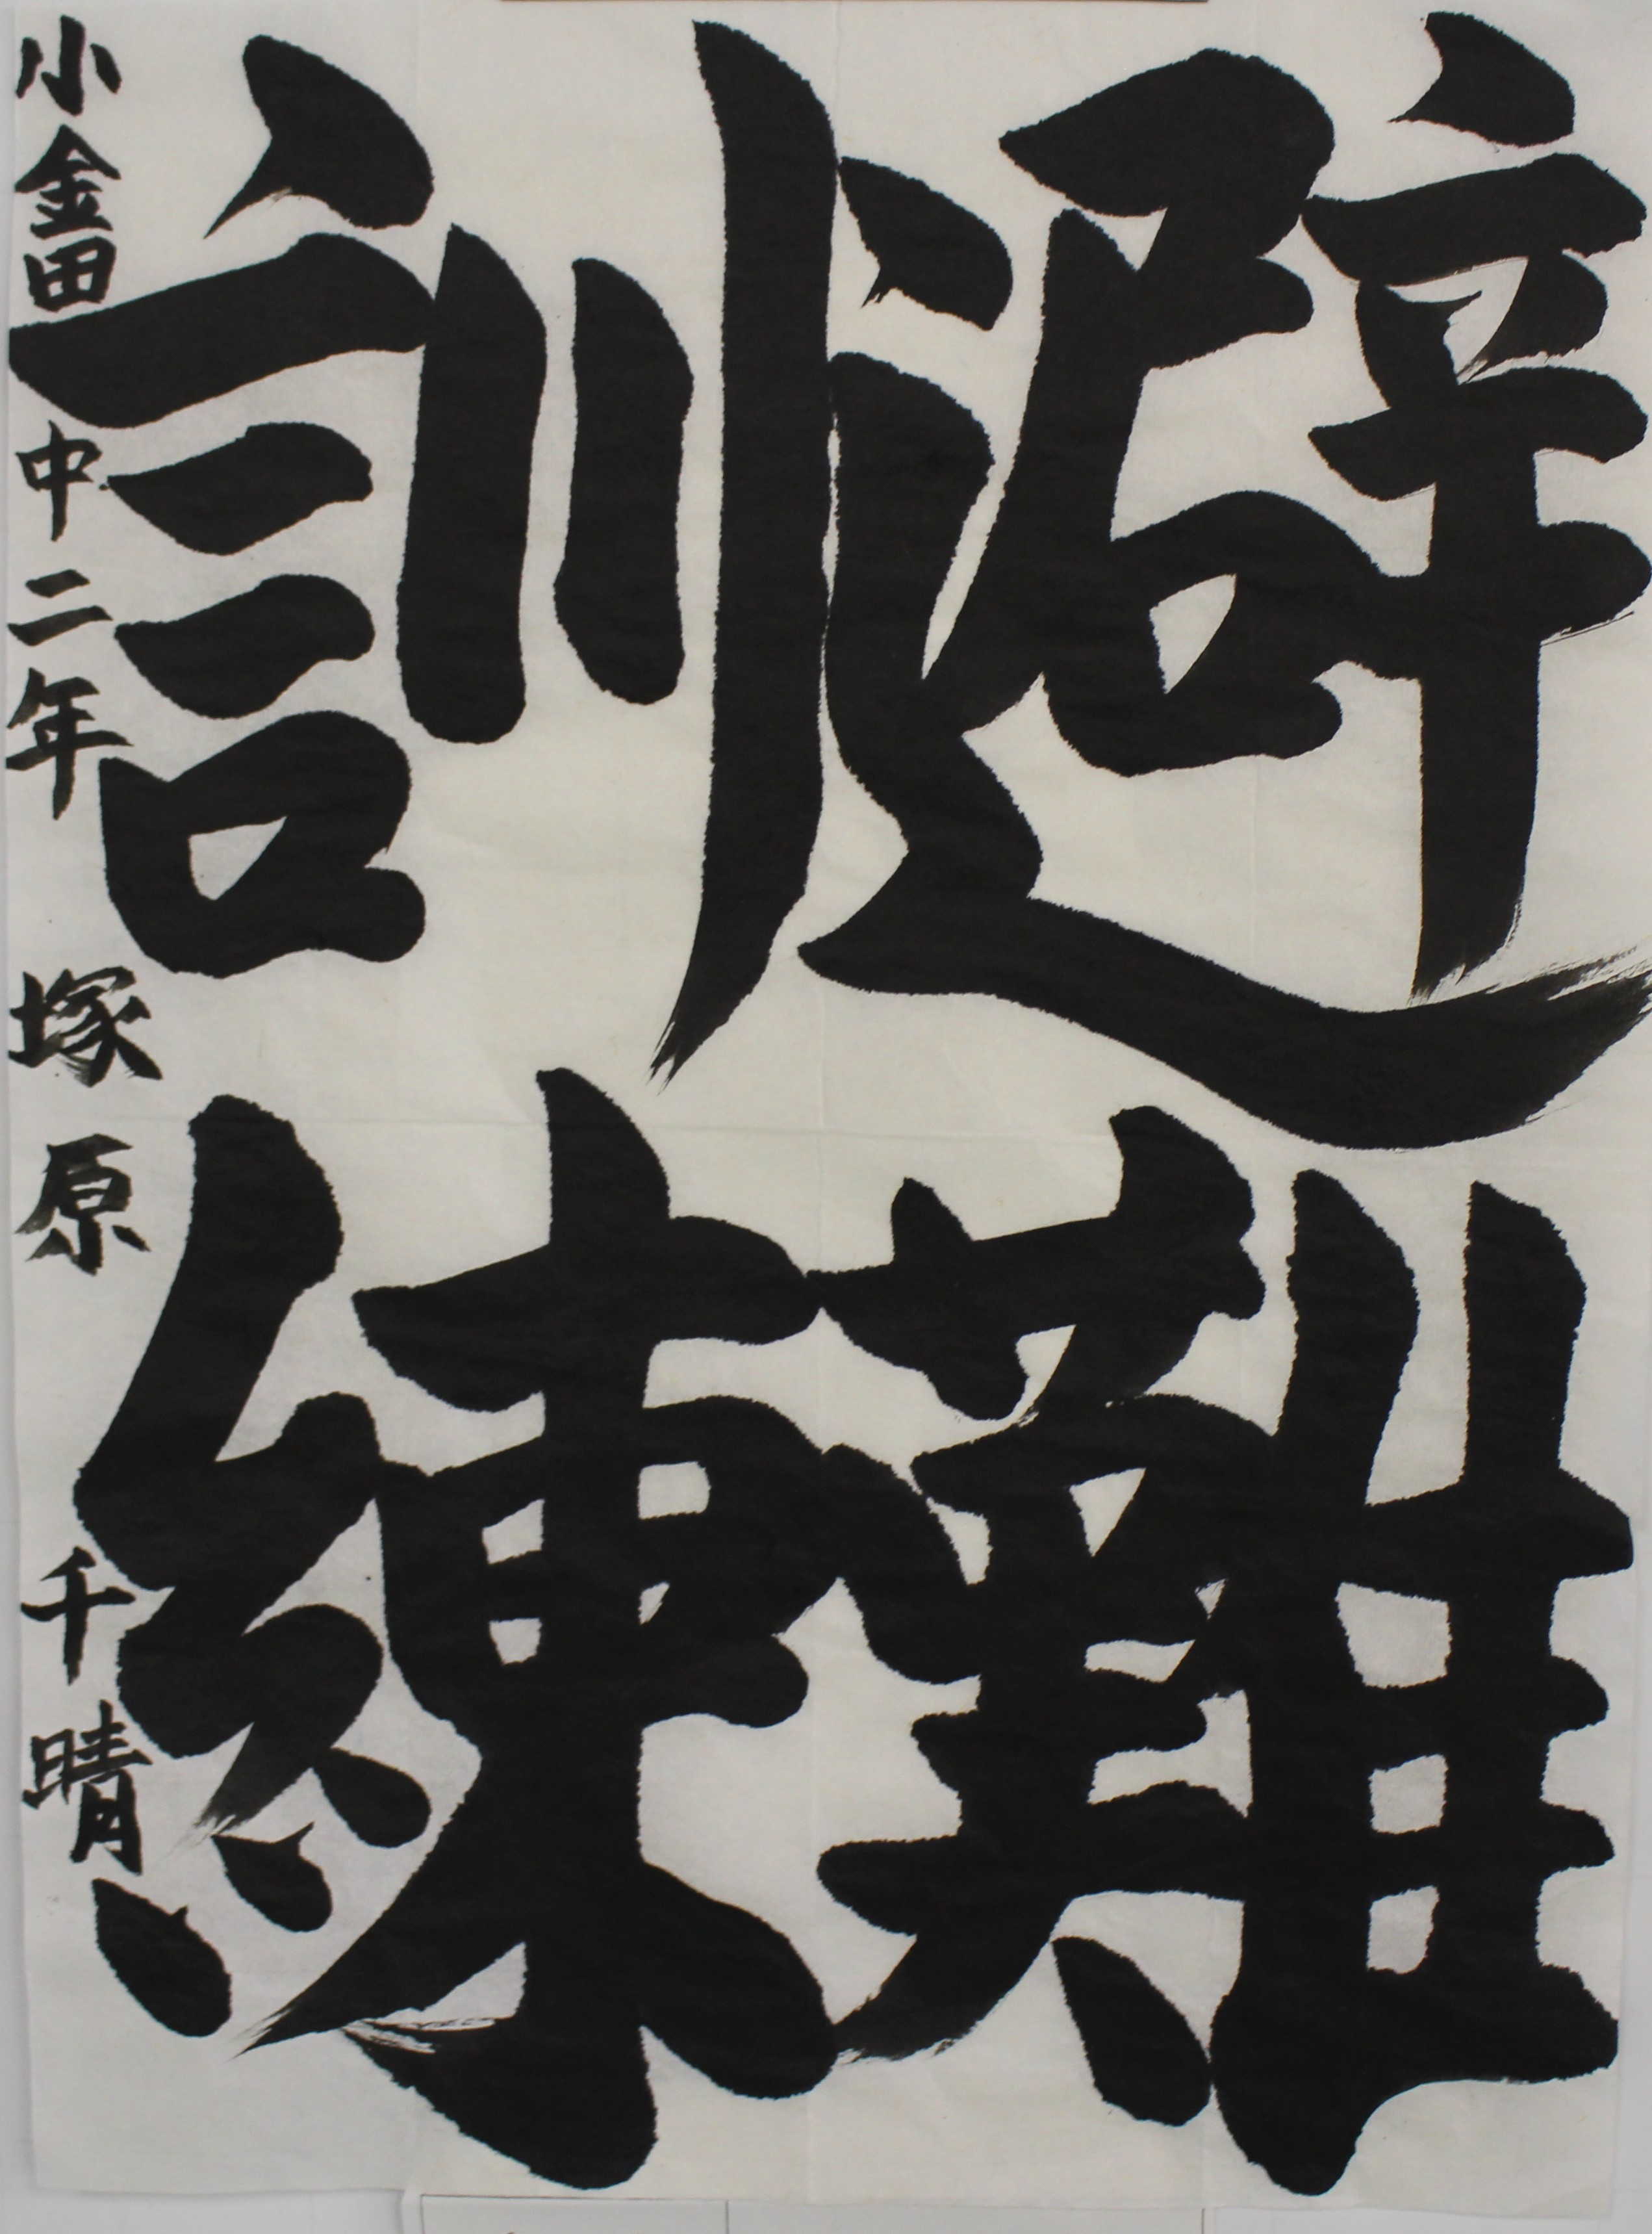 避難
訓練
小金田中二年 塚原千晴